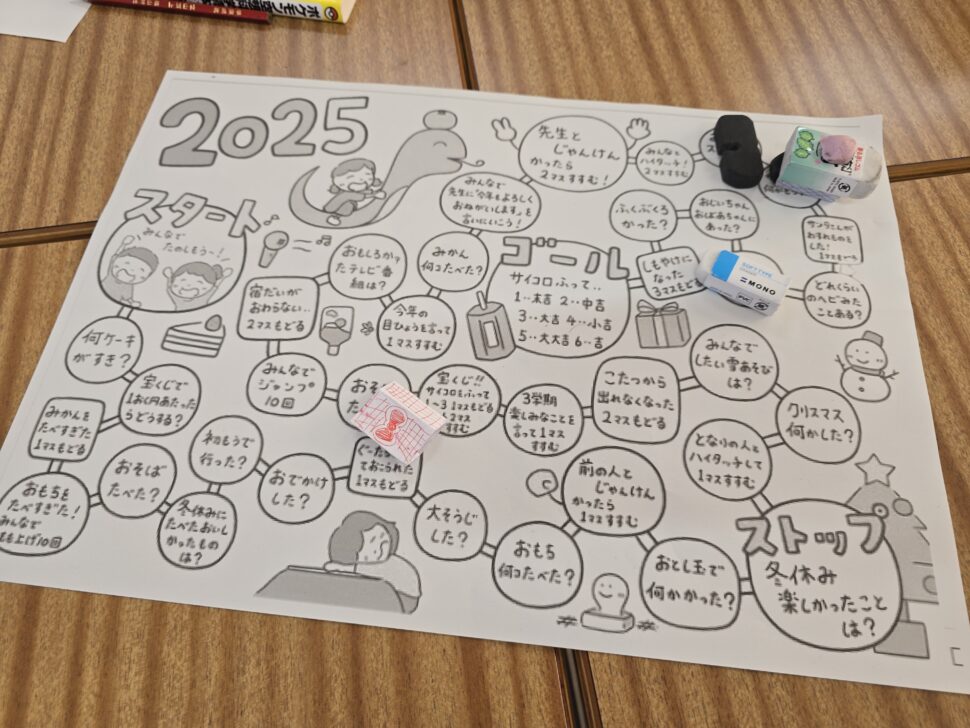 2025
スタート
みんなで
たのしもう〜!
何ケーキ
がすき?
宝くじで
1おく円あたった
らどうする?
みかんを
たべすぎた
1マスもどる
おもちを
たべすぎた!
みんなで
もも上げ10回
おそば
たべた?
冬休みに
たべたおいし
かったもの
は?
初もうで
行った?
おでかけ
した?
ておこられた
1マスもどる
大そうじ
した?
おもち
何コたべた?
前の人と
じゃんけん
かったら
1マスすすむ
おとし玉で
何かかった?
ストップ
冬休み
楽しかったこと
は?
となりの人と
ハイタッチして
1マスすすむ
クリスマス
何かした?
みんなで
したい雪あそび
は?
こたつから
出れなくなった
2マスもどる
3学期
楽しみなことを
言って1マス
すすむ
宝くじ!!
サイコロをふって
1~3 1マスもどる
2マス
すすむ
おそ
みんなで
ジャンプ
10回
宿だいが
おわらない..
2マスもどる
おもしろかっ
たテレビ番
組は?
今年の
目ひょうを言って
1マスすすむ
みかん
何コたべた?
みんなで
先生に「今年もよろしく
おねがいします」を
言いにいこう!
先生と
じゃんけん
かったら
2マスすすむ!
みんなと
ハイタッチ!
2マスすすむ
サンタさんが
わすれものを
した!
1マスもどる
どれくらい
のヘビみた
ことある?
おじいちゃん
おばあちゃんに
あった?
ふくぶくろ
かった?
しもやけに
なった
3マスもどる
ゴール
サイコロふって‥
1‥末吉 2‥中吉
3‥大吉 4‥小吉
5‥大大吉 6‥吉
MONO
PVC